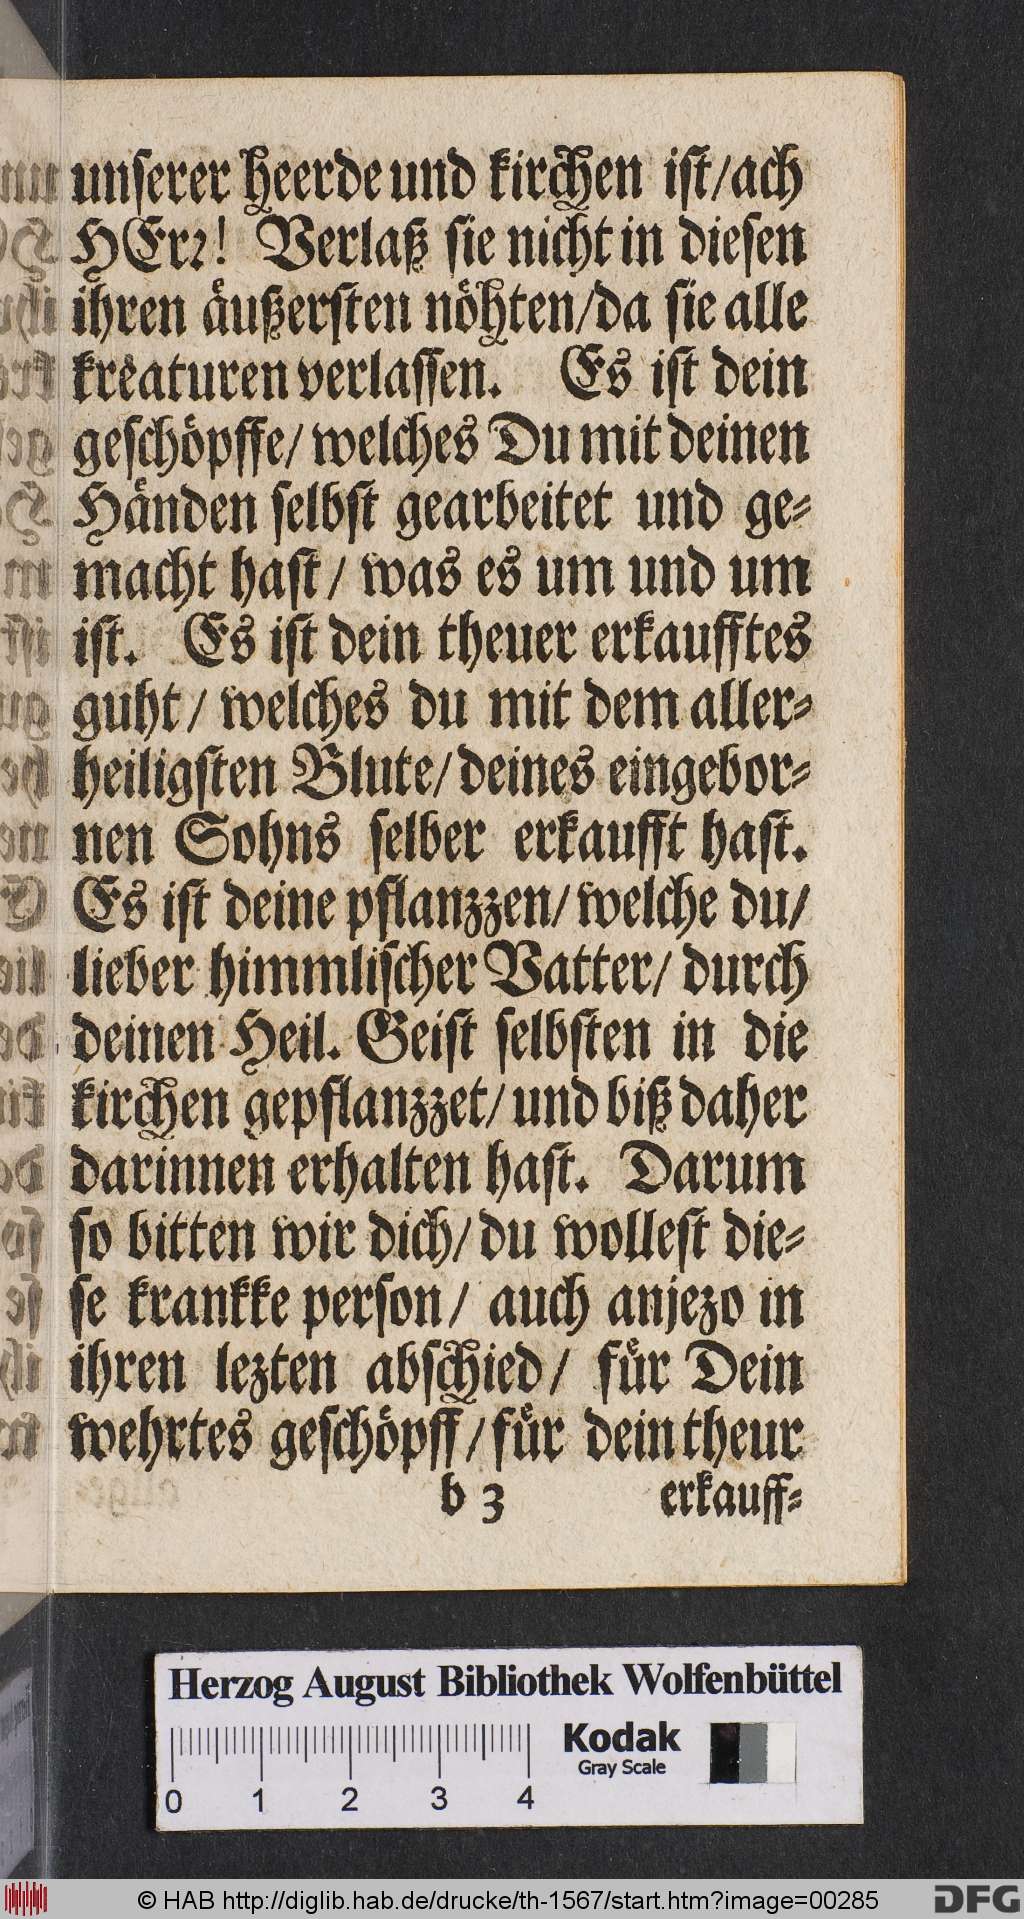 unserer heerde und kirchen ist/ach
HErr! Verlaß sie nicht in diesen
ihren äußersten nöhten/da sie alle
krëaturen verlassen. Es ist dein
geschöpffe/ welches Du mit deinen
Händen selbst gearbeitet und ge=
macht hast/ was es um und um
ist. Es ist dein theuer erkaufftes
guht/ welches du mit dem aller=
heiligsten Blute/ deines eingebor=
nen Sohns selber erkaufft hast.
Es ist deine pflanzzen/ welche du/
lieber himmlischer Vatter/ durch
deinen Heil. Geist selbsten in die
kirchen gepflanzzet/ und biß daher
darinnen erhalten hast. Darum
so bitten wir dich/ du wollest die=
se krankke person/ auch anjezo in
ihren lezten abschied/ für Dein
wehrtes geschöpff/ für dein theur
b 3 erkauff=
Herzog August Bibliothek Wolfenbüttel
Kodak
Gray Scale
0 1 2 3 4
© HAB http://diglib.hab.de/drucke/th-1567/start.htm?image=00285
DFG